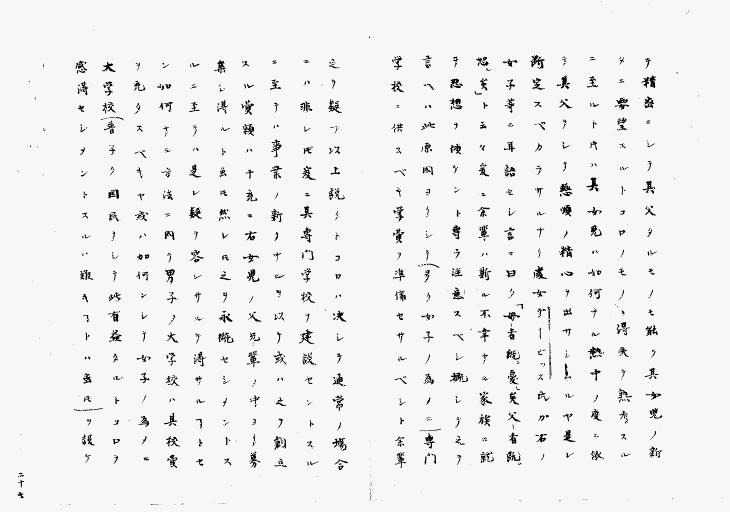 ヲ精密ニシテ其父タルモノモ能ク其女児ノ新
タニ要望スルトコロノモノヽ得失ヲ熟考スル
ニ至ルト氏ハ其女児ハ如何ナル熱中ノ度ニ依
テ其父ヲシテ懸煩ノ精心ヲ出サシムルヤ是レ
断定スベカラサルナリ處女ダービッス氏カ右ノ
女子等ニ耳語セシ言ニ曰ク「母者既憂矣父者既
怒矣」ト云々爰ニ余輩ハ斯ル不幸ナル家族ニ就
テ思想ヲ傾ケント専ラ注意スベシ概シテ之ヲ
言ヘハ此原因ヨリシテ多ク女子ノ為メニ専門
学校ニ供スベキ学資ノ準備セサルベシト余輩
之ヲ疑フ以上説クトコロハ决シテ通常ノ場合
ニハ非レ氏爰ニ其専門学校ヲ建設セントスル
ニ至テハ事業ノ新タナルヲ以テ或ハ之ヲ創立
スル資額ハ十充ニ右女児ノ父兄輩ノ中ヨリ募
集シ得ルト虽氏然レ氏之ヲ永続セシメントス
ルニ至テハ是レ疑ヲ容レサルヲ得サルヿトセ
ン如何ナル方法ニ因リ男子ノ大学校ハ其校資
ヲ充タスベキヤ或ハ如何シテ女子ノ為メニ
大学校(普子ク国民ヲシテ此有益タルトコロヲ
感得セシメントスルハ難キヿトハ虽氏)ヲ設ケ
二十七